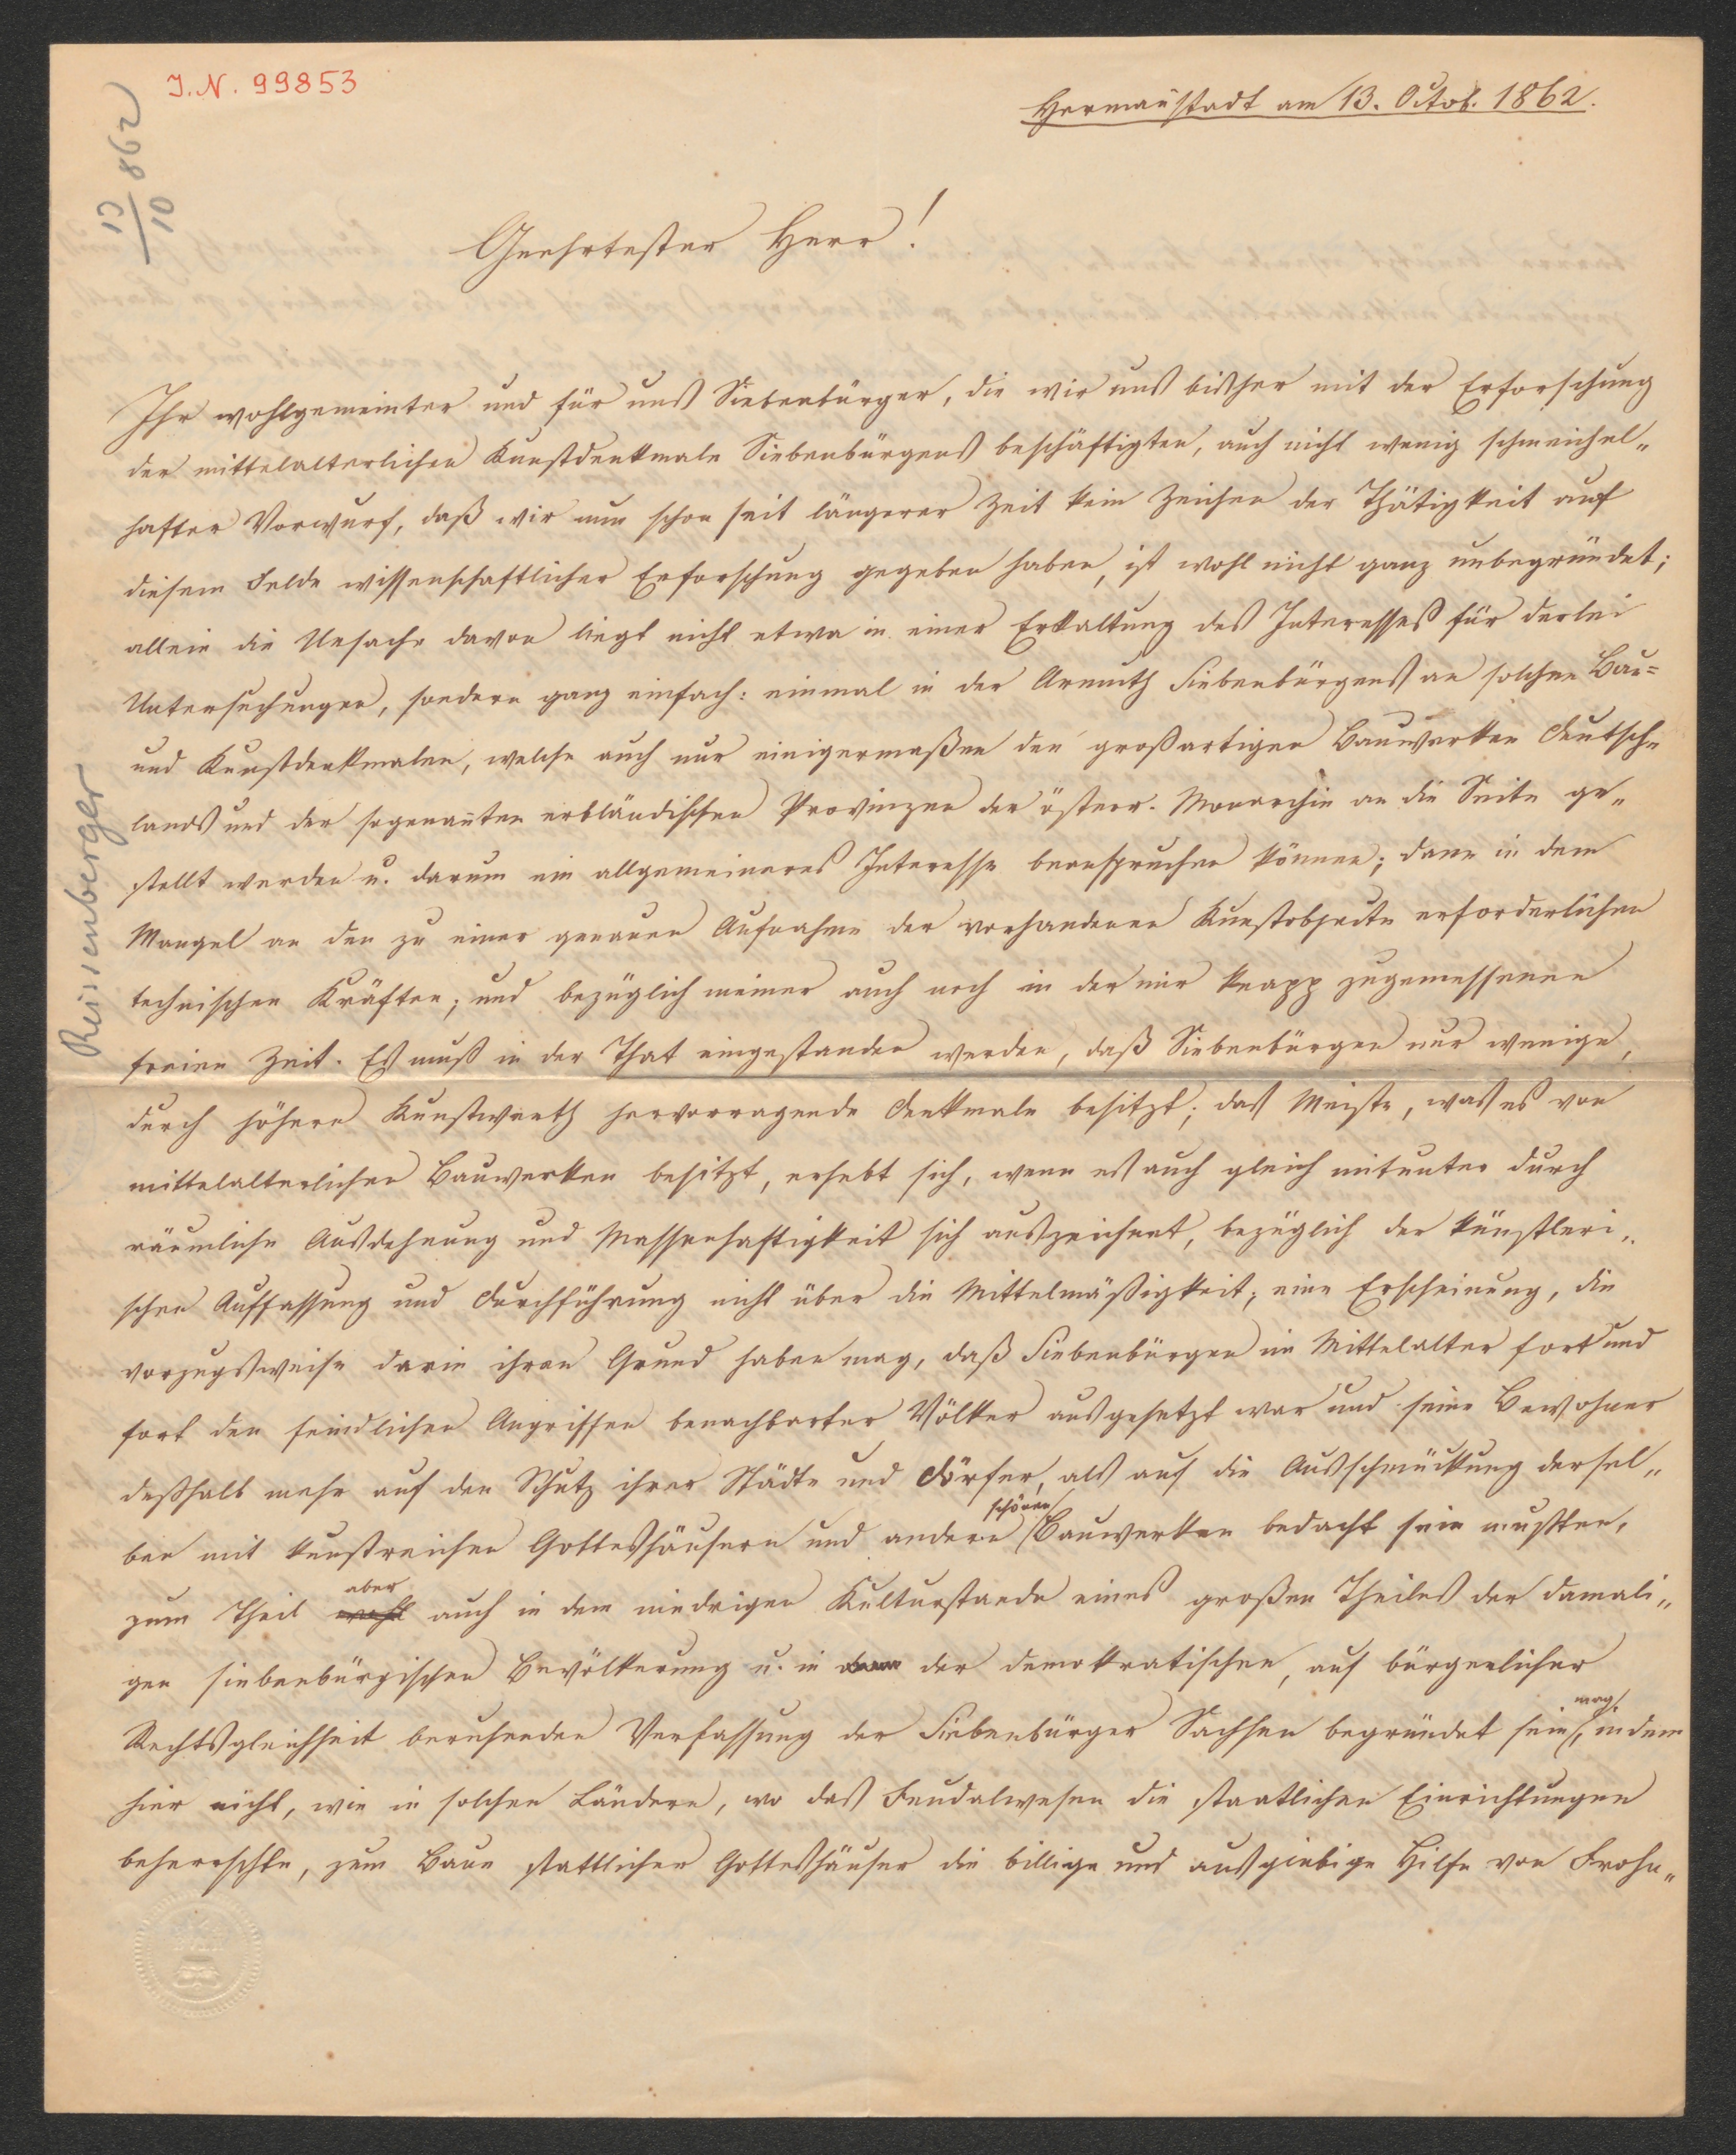 I. N. 99853
13/10 862
Hermanstadt am 13. Octob. 1862.
Geehrtester Herr!
Ihr wohlgemeinter und für uns Siebenbürger, die wir uns bisher mit der Erforschung
der mittelalterlichen Kunstdenkmale Siebenbürgens beschäftigten, auch nicht wenig schmeichel„
hafter Vorwurf, daß wir nun schon seit längerer Zeit kein Zeichen der Thätigkeit auf
diesem Felde wissenschaftlicher Erforschung gegeben haben, ist wohl nicht ganz unbegründet;
allein die Ursache davon liegt nicht etwa in einer Erkaltung des Interesses für derlei
Untersuchungen, sondern ganz einfach: einmal in der Armuth Siebenbürgens an solchen Bau=
und Kunstdenkmalen, welche auch nur einigermaßen den großartigen Bauwerken Deutsch„
lands und der sogenannten erbländischen Provinzen der österr. Monarchie an die Seite ge„
stellt werden u. darum ein allgemeineres Interesse beanspruchen können; dann in dem
Mangel an den zu einer genauen Aufnahme der vorhandenen Kunstobjecte erforderlichen
technischen Kräften; und bezüglich meiner auch noch in der mir knapp zugemessenen
freien Zeit. Es muß in der That eingestanden werden, daß Siebenbürgen nur wenige,
durch höhern Kunstwerth hervorragende Denkmale besitzt; das Meiste, was es von
mittelalterlichen Bauwerken besitzt, erhebt sich, wenn es auch gleich mitunter durch
räumliche Ausdehnung und Massenhaftigkeit sich auszeichnet, bezüglich der künstleri„
schen Auffassung und Durchführung nicht über die Mittelmäßigkeit; eine Erscheinung, die
vorzugsweise darin ihren Grund haben mag, daß Siebenbürgen im Mittelalter fort und
fort den feindlichen Angriffen benachbarter Völker ausgesetzt war und seine Bewohner
deßhalb mehr auf den Schutz ihrer Städte und Dörfer, als auf die Ausschmückung dersel„
ben mit kunstreichen Gotteshäusern und andern schönen Bauwerken bedacht sein mußten,
zum Theil wohl aber auch in dem niedrigen Kulturstande eines großen Theiles der damali„
gen siebenbürgischen Bevölkerung u. in der demokratischen, auf bürgerlicher
Rechtsgleichheit beruhenden Verfassung der Siebenbürger Sachsen begründet sein mag, indem
hier nicht, wie in solchen Ländern, wo das Feudalwesen die staatlichen Einrichtungen
beherrschte, zum Baue stattlicher Gotteshäuser die billige und ausgiebige Hilfe von Frohn„
Reissenberger